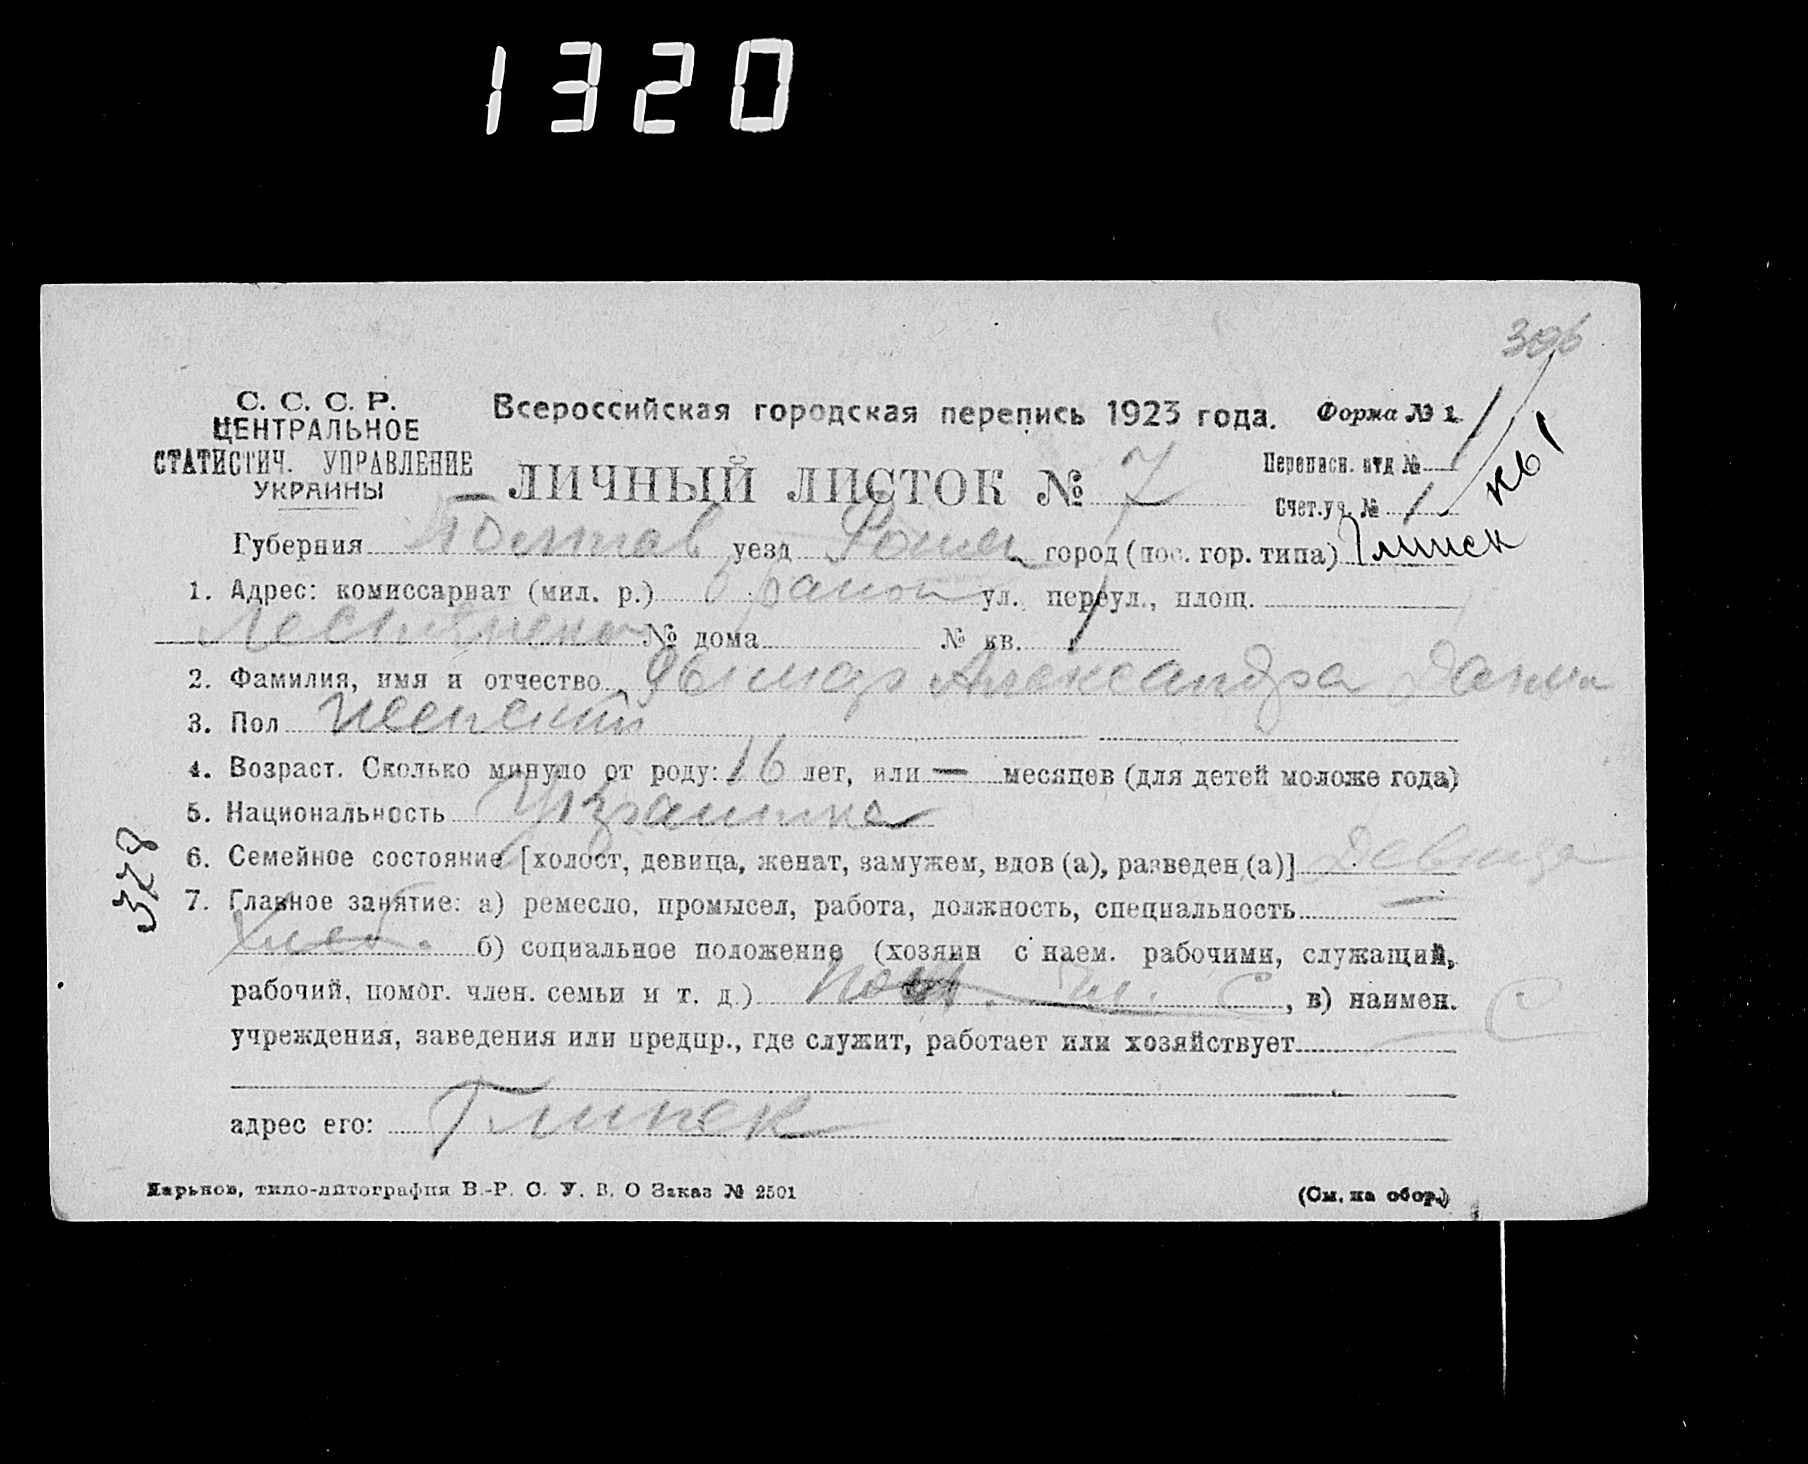 1320
396
С. С. С. Р.
ЦЕНТРАЛЬНОЕ
СТАТИСТИЧ. УПРАВЛЕНИЕ
УКРАИНЫ
Всероссийская городская перепись 1923 года. Форма № 1.
ЛИЧНЫЙ ЛИСТОК № 7
Переписн. отд № 1
Счет.уч. № 1
кв 1
Губерния Полтав уезд Ромен город (пос. гор. типа) Глинск
1. Адрес: комиссариат (мил. р.) район ул., переул., площ.
№ дома № кв. 1
2. Фамилия, имя и отчество Александра
3. Пол Женский
4. Возраст. Сколько минуло от роду: 16 лет, или — месяцев (для детей моложе года)
5. Национальность Украинка
6. Семейное состояние [холост, девица, женат, замужем, вдов (а), разведен (а)] Девица
7. Главное занятие: а) ремесло, промысел, работа, должность, специальность —
Хлеб. б) социальное положение (хозяин с наем. рабочими, служащий,
рабочий, помог. член. семьи и т. д.) пом. чл. С, в) наимен. С
учреждения, заведения или предпр., где служит, работает или хозяйствует
адрес его: Глинск
328
Харьков, типо-литография В.-Р. С. У. В. О Заказ № 2501
(См. на обор.)